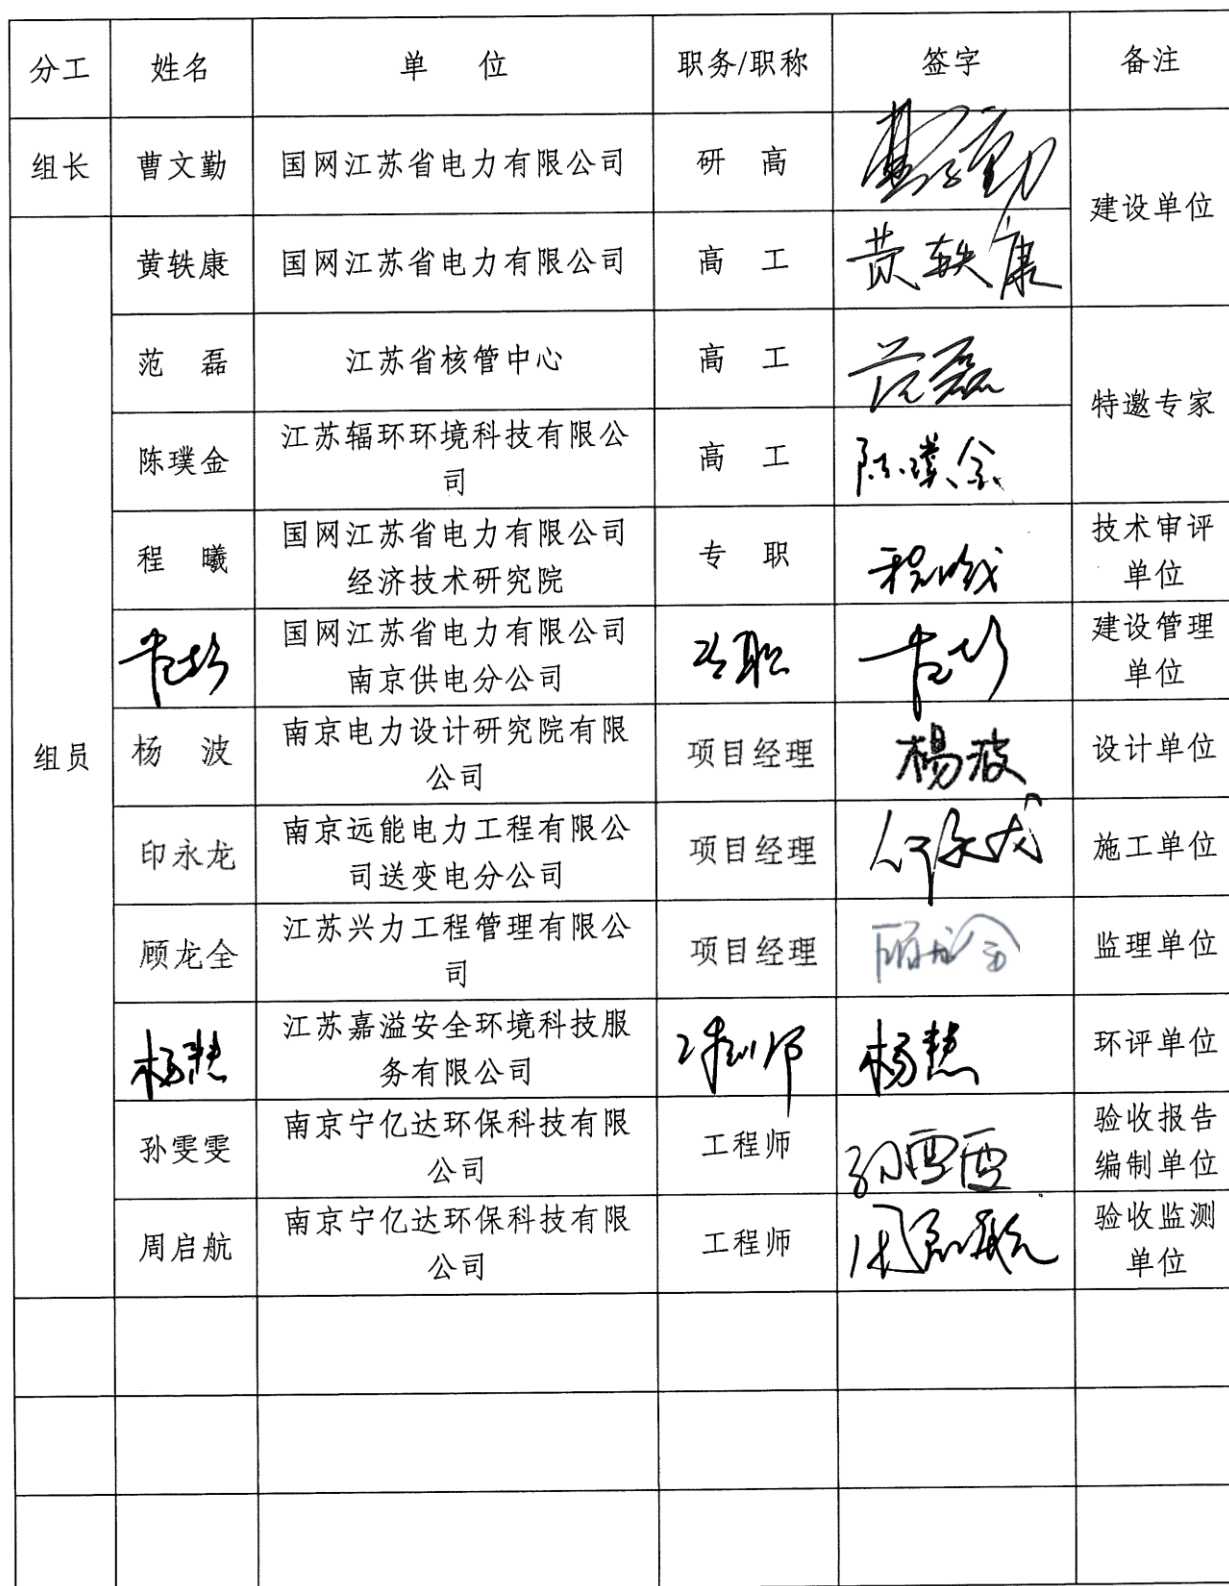 分工 姓名 单 位 职务/职称 签字 备注
组长 曹文勤 国网江苏省电力有限公司 研 高 曹文勤
建设单位
黄轶康 国网江苏省电力有限公司 高 工 黄轶康
范 磊 江苏省核管中心 高 工 范磊
特邀专家
陈璞金 江苏辐环环境科技有限公
司
高 工 陈璞金
程 曦 国网江苏省电力有限公司
经济技术研究院
专 职 程曦
技术审评
单位
国网江苏省电力有限公司
南京供电分公司
专职
建设管理
单位
组员 杨 波 南京电力设计研究院有限
公司
项目经理 楊波 设计单位
印永龙 南京远能电力工程有限公
司送变电分公司
项目经理 印永龙 施工单位
顾龙全 江苏兴力工程管理有限公
司
项目经理 顾龙全 监理单位
杨慧 江苏嘉溢安全环境科技服
务有限公司
工程师 杨慧 环评单位
孙雯雯 南京宁亿达环保科技有限
公司
工程师 孙雯雯
验收报告
编制单位
周启航 南京宁亿达环保科技有限
公司
工程师 周启航
验收监测
单位